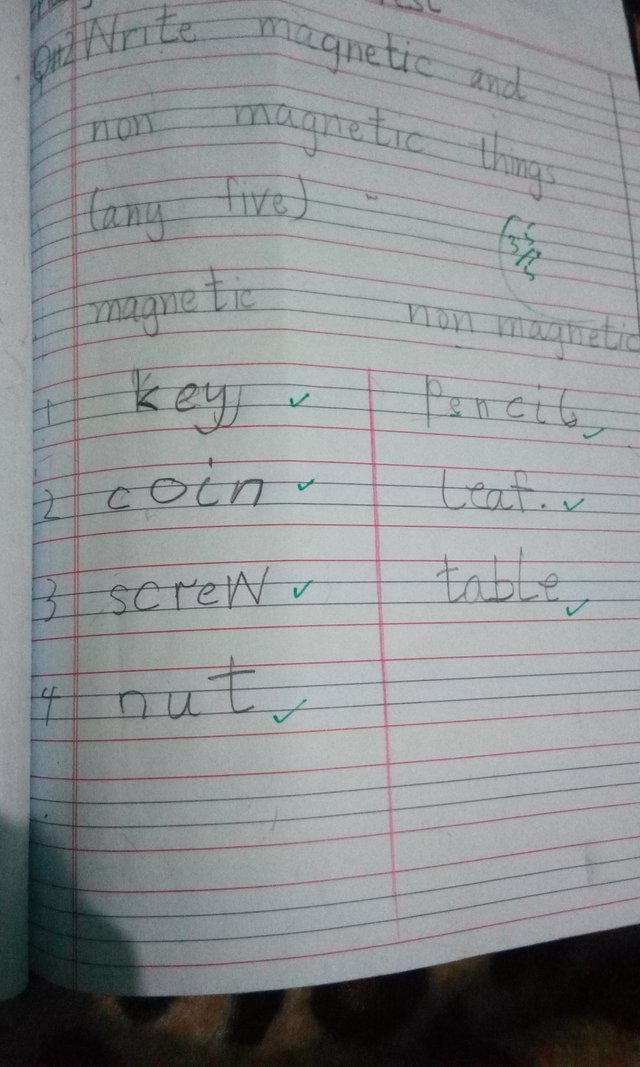 Qn2 Write magnetic and
non magnetic things
(any five) -
magnetic non magnetic
1 key ✓ Pencil ✓
2 coin ✓ leaf. ✓
3 screw ✓ table ✓
4 nut ✓